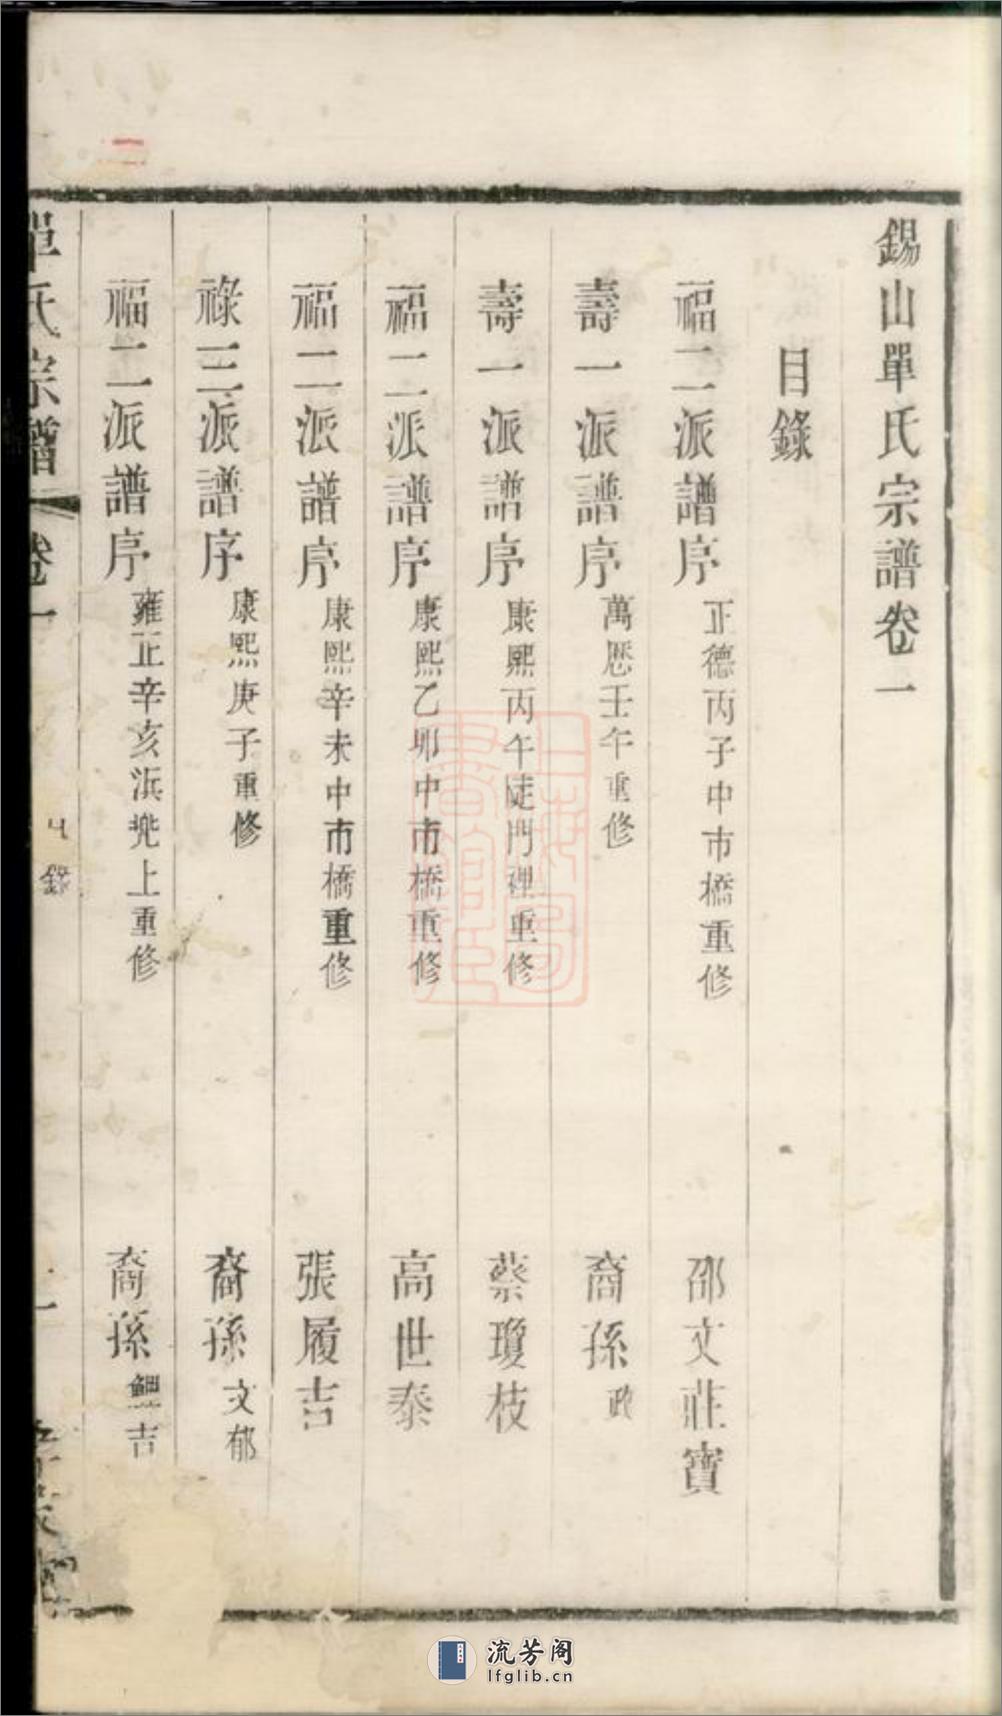 錫山單氏宗譜卷一
目錄
福二派譜序 正德丙子中市橋重修 邵文莊寶
壽一派譜序 萬歷壬午重修 裔孫政
壽一派譜序 康熙丙午陡門裡重修 蔡瓊枝
福二派譜序 康熙乙卯中市橋重修 高世泰
福二派譜序 康熙辛未中市橋重修 張履吉
祿三派譜序 康熙庚子重修 裔孫文郁
福二派譜序 雍正辛亥浜兠上重修 裔孫鯉吉
單氏宗譜 卷一 目錄 一
流芳阁
lfglib.cn